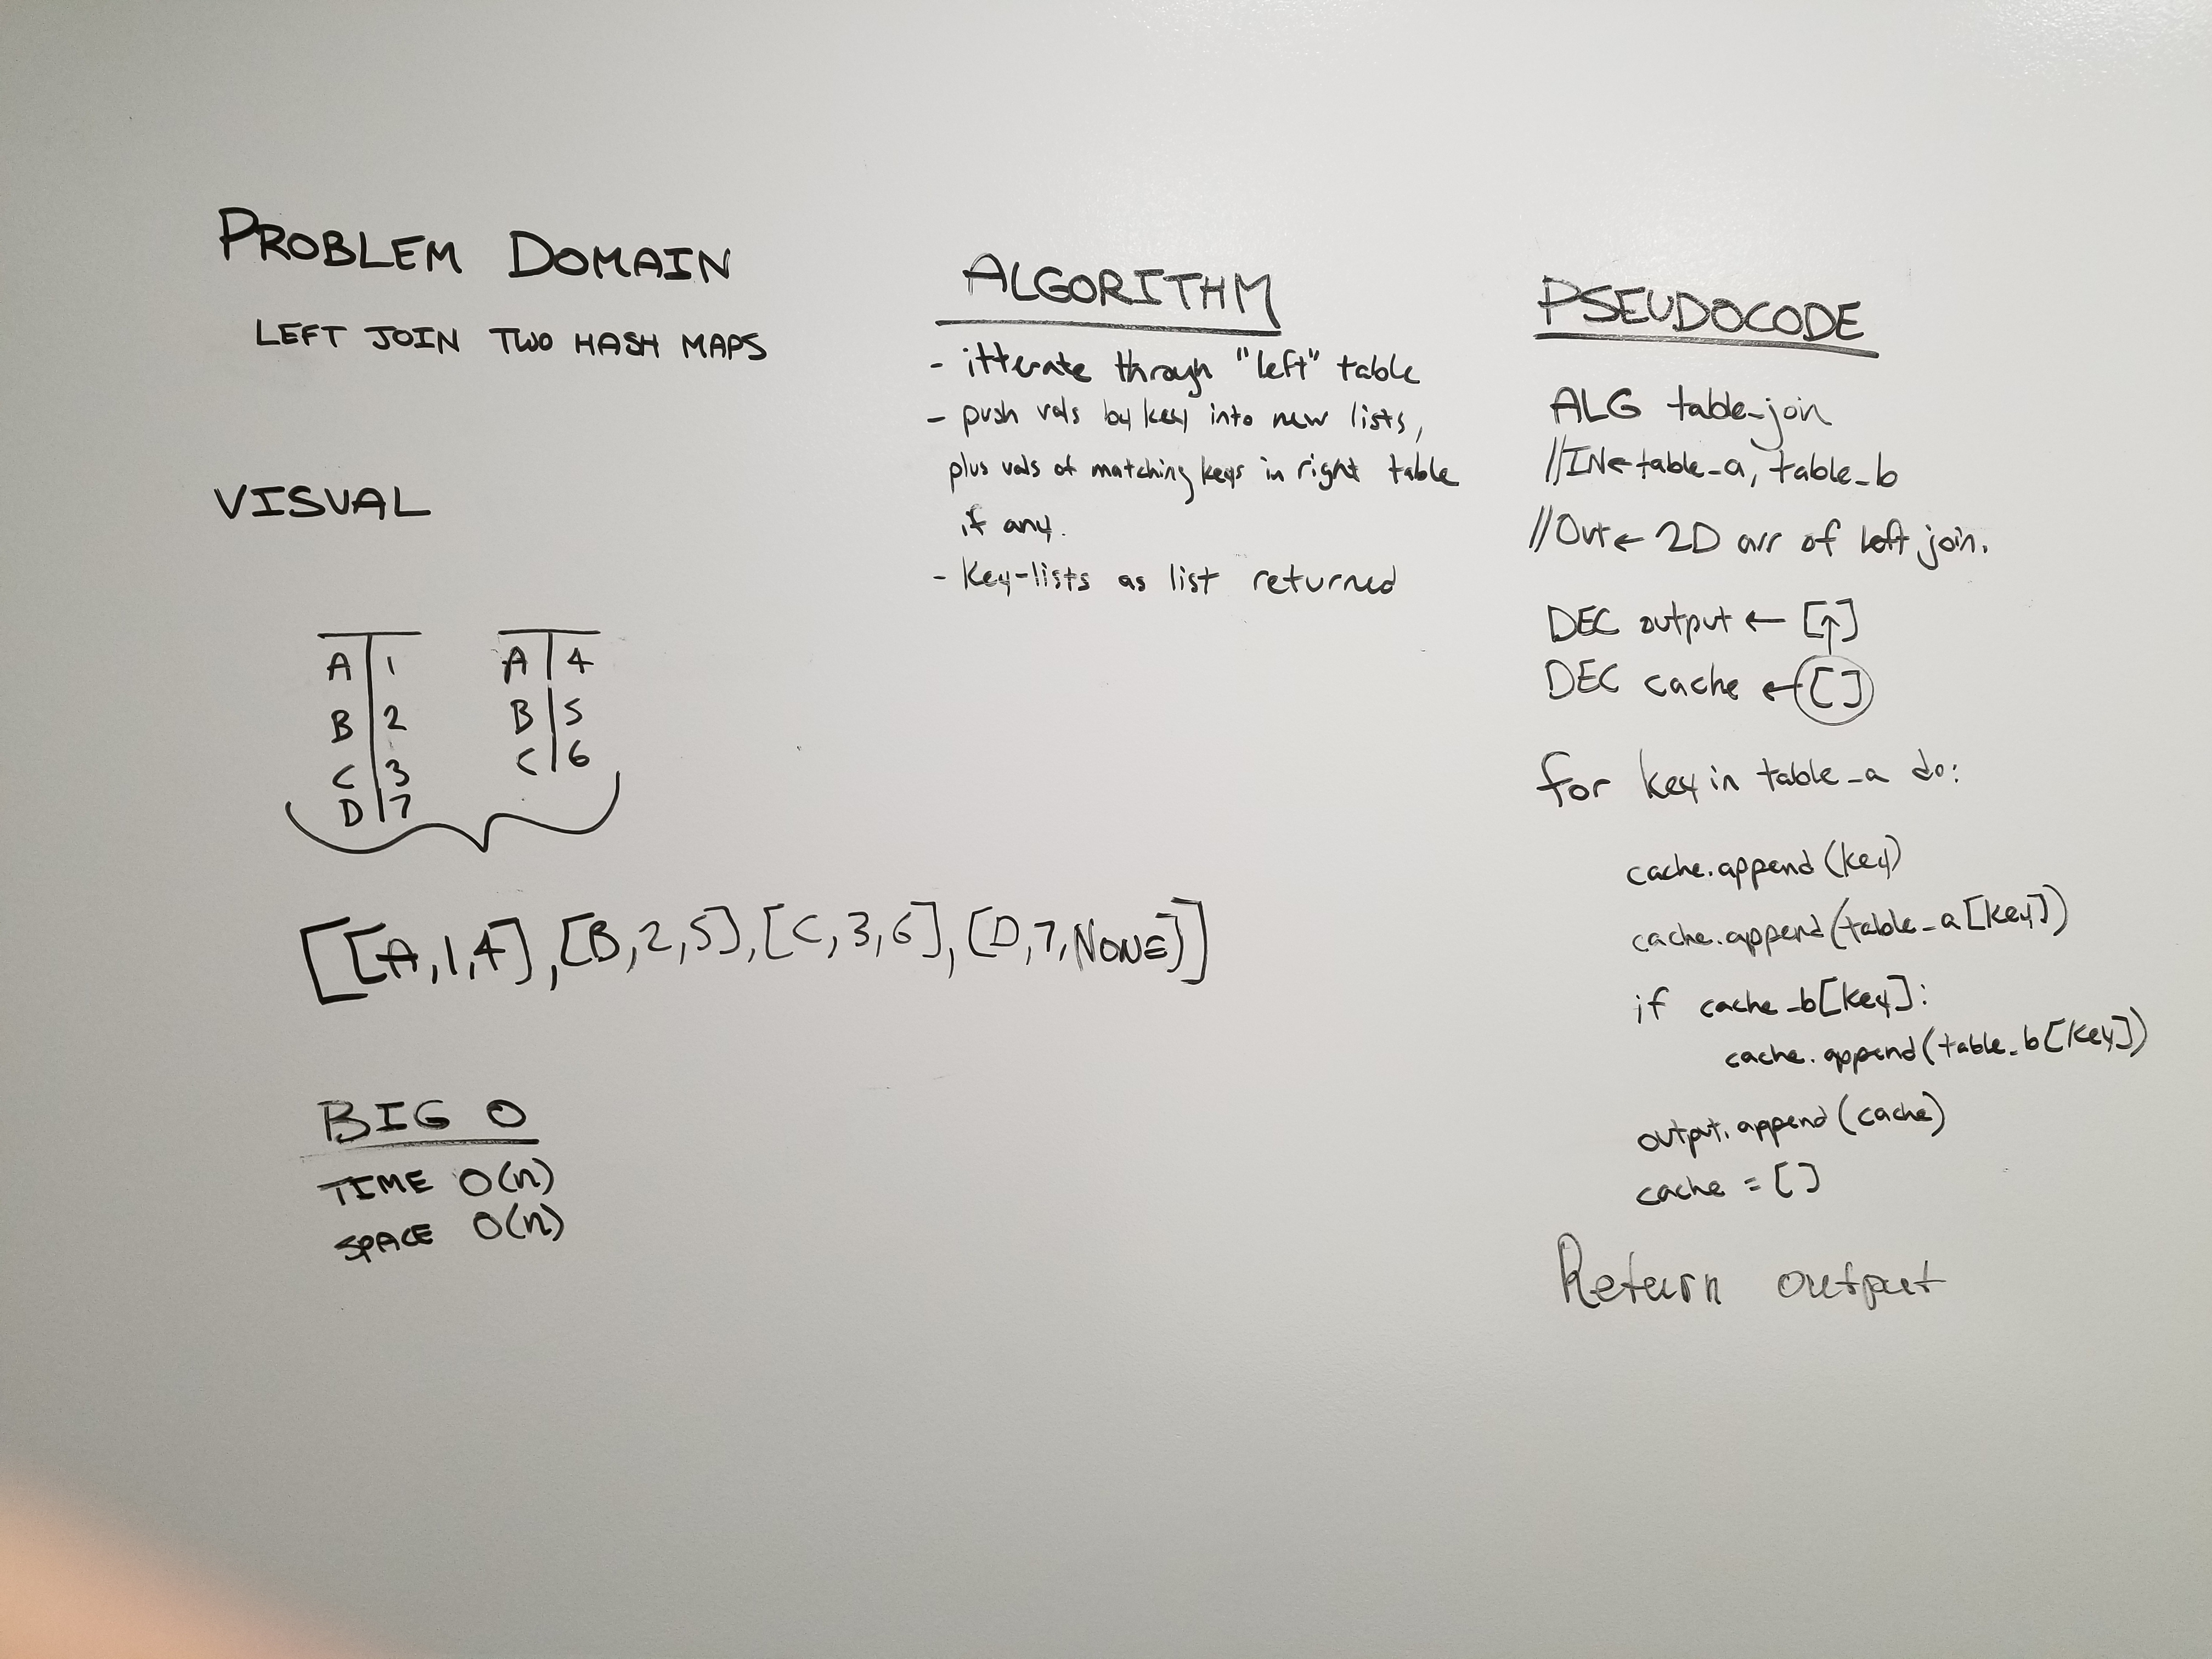 PROBLEM DOMAIN
LEFT JOIN TWO HASH MAPS
VISUAL
A 1
B 2
C 3
D 7
A 4
B 5
C 6
[[A,1,4],[B,2,5],[C,3,6],[D,7,NONE]]
BIG O
TIME O(n)
SPACE O(n)
ALGORITHM
- itterate through "left" table
- push vals by key into new lists,
plus vals of matching keys in right table
if any.
- Key-lists as list returned
PSEUDOCODE
ALG table_join
//IN← table_a, table_b
//Out← 2D arr of left join.
DEC output ← [↑]
DEC cache ← []
for key in table_a do:
cache.append(key)
cache.append(table_a[key])
if cache_b[key]:
cache.append(table_b[key])
output.append(cache)
cache = []
Return output